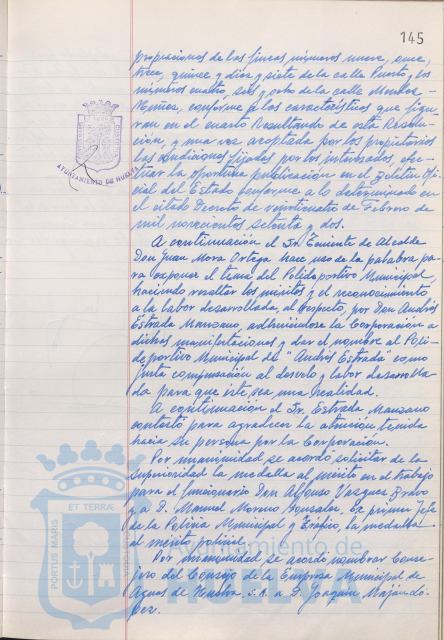 145
propiaciones de las fincas números nueve, once,
trece, quince y diez y siete de la calle Puerto y los
números cuatro, seis y ocho de la calle Mendez
Nuñez, conforme a las características que figu-
ran en el cuarto Resultando de esta Resolu-
ción, y una vez aceptada por los propietarios
las condiciones fijadas por los interesados, efec-
tuar la oportuna publicación en el Boletín Ofi-
cial del Estado conforme a lo determinado en
el citado Decreto de veinticuatro de Febrero de
mil novecientos setenta y dos.
A continuación el Sr. Teniente de Alcalde
Don Juan Mora Ortega hace uso de la palabra pa-
ra exponer el tema del Polideportivo Municipal
haciendo resaltar los méritos y el reconocimiento
a la labor desarrollada, al respecto, por Don Andrés
Estrada Manzano, adhiriéndose la Corporación a
dichas manifestaciones y dar el nombre al Poli-
deportivo Municipal de "Andrés Estrada" como
justa compensación al desvelo y labor desarrolla-
da para que éste sea una realidad.
A continuación el Sr. Estrada Manzano
contestó para agradecer la atención tenida
hacia su persona por la Corporación.
Por unanimidad se acordó solicitar de la
Superioridad la medalla al mérito en el trabajo
para el funcionario Don Alfonso Vazquez Bravo
y a D. Manuel Moreno Gonzalez, Ex primer Jefe
de la Policía Municipal y Tráfico, la medalla
al mérito policial.
Por unanimidad se acordó nombrar Conse-
jero del Consejo de la Empresa Municipal de
Aguas de Huelva S.A. a D. Joaquin
AYUNTAMIENTO DE HUELVA
PORTUS MARIS ET TERRAE
Ayuntamiento de
HUELVA